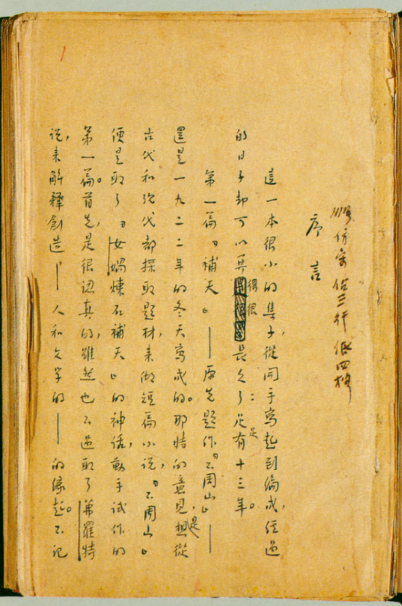 仿宋佔三行 低四格
序言
這一本很小的集子,從開手寫起到編成,經過
的日子却可以算得很長久了:足足有十三年。
第一篇「補天」——原先題作「不周山」——
還是一九二二年的冬天寫成的。那時的意見,是想從
古代和現代都採取題材,來做短篇小說,「不周山」
便是取了「女媧煉石補天」的神話,動手試作的
第一篇。首先,是很認真的,雖然也不過取了茀羅特
說,來解釋創造——人和文學的——的緣起。不記